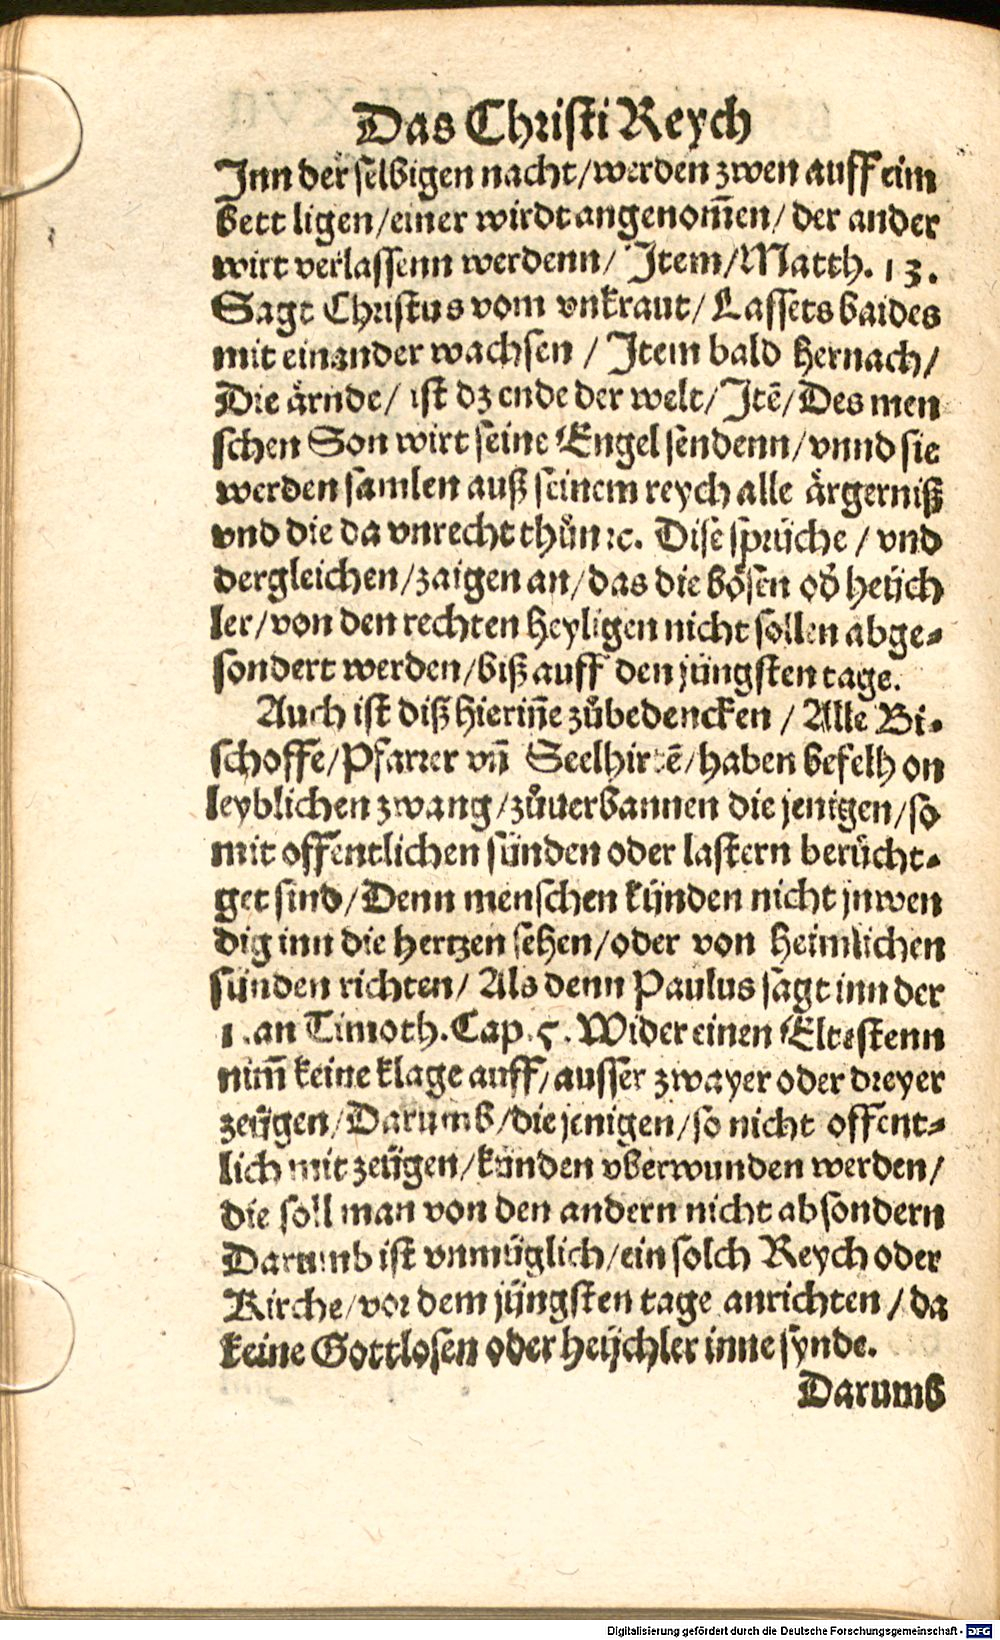 Das Christi Reych
Inn der selbigen nacht/werden zwen auff eim
bett ligen/einer wirdt angenom̃en/ der ander
wirt verlassenn werdenn/ Item/Matth. 13.
Sagt Christus vom vnkraut/ Lassets baides
mit einander wachsen / Item bald hernach/
Die ärnde/ ist dz ende der welt/ Itẽ/ Des men
schen Son wirt seine Engel sendenn/vnnd sie
werden samlen auß seinem reych alle ärgerniß
vnd die da vnrecht thůn ꝛc. Dise sprüche / vnd
dergleichen/zaigen an/das die bösen oď heüch
ler/von den rechten heyligen nicht sollen abge-
sondert werden/biß auff den jüngsten tage.
Auch ist diß hierin̄e zůbedencken / Alle Bi-
schoffe/Pfarrer vñ Seelhirtẽ/haben befelh on
leyblichen zwang/zůuerbannen die jenigen/so
mit offentlichen sünden oder lastern berücht-
get sind/Denn menschen künden nicht jnwen
dig inn die hertzen sehen/oder von heimlichen
sünden richten/ Als denn Paulus sagt inn der
1. an Timoth. Cap. 5. Wider einen Eltestenn
nim̃ keine klage auff/ausser zwayer oder dreyer
zeügen/Darumb/die jenigen/so nicht offent-
lich mit zeügen/künden vberwunden werden/
die soll man von den andern nicht absondern
Darumb ist vnmüglich/ein solch Reych oder
Kirche/vor dem jüngsten tage anrichten / da
keine Gottlosen oder heüchler inne synde.
Darumb
Digitalisierung gefördert durch die Deutsche Forschungsgemeinschaft - DFG